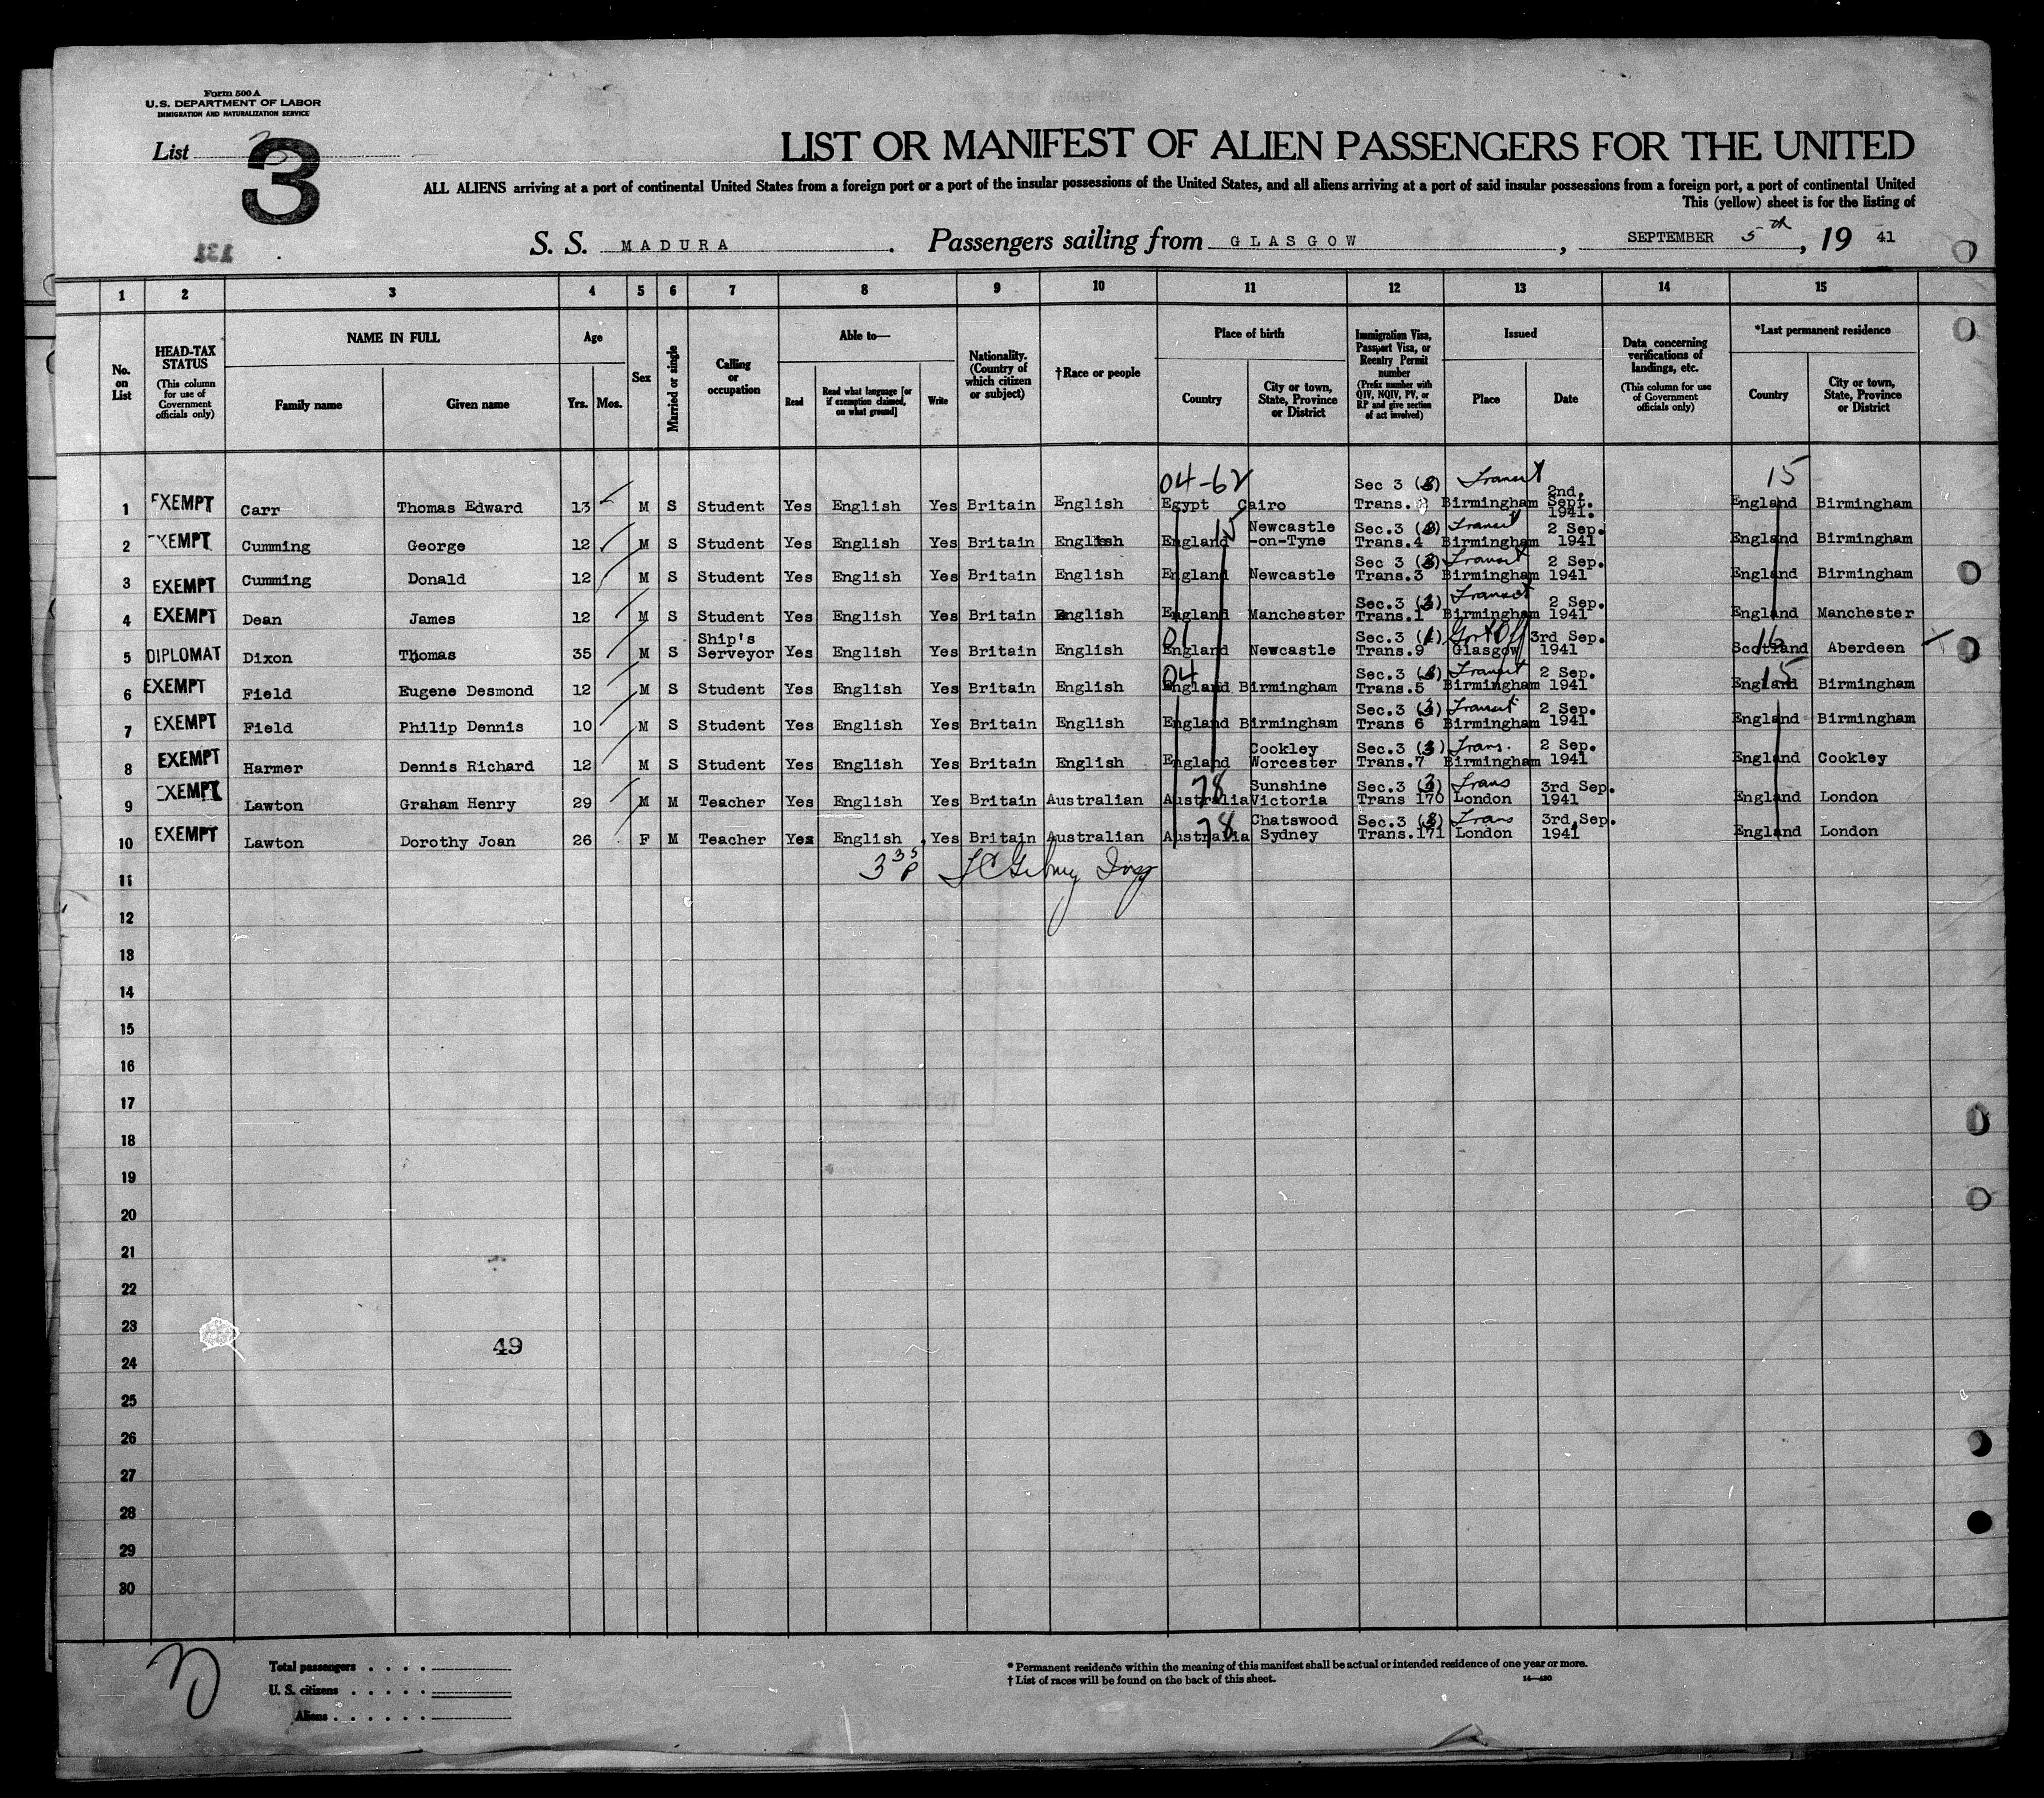 Form 500 A
U.S. DEPARTMENT OF LABOR
IMMIGRATION AND NATURALIZATION SERVICE
List 3
3
LIST OR MANIFEST OF ALIEN PASSENGERS FOR THE UNITED
ALL ALIENS arriving at a port of continental United States from a foreign port or a port of the insular possessions of the United States, and all aliens arriving at a port of said insular possessions from a foreign port, a port of continental United
This (yellow) sheet is for the listing of
S. S. MADURA. Passengers sailing from GLASGOW, SEPTEMBER 5th, 19 41
131
1 2 3 4 5 6 7 8 9 10 11 12 13 14 15
No. on List
HEAD-TAX STATUS (This column for use of Government officials only)
NAME IN FULL
Family name Given name
Age
Yrs. Mos.
Sex
Married or single
Calling or occupation
Able to—
Read Read what language [or if exemption claimed, on what ground] Write
Nationality. (Country of which citizen or subject)
†Race or people
Place of birth
Country City or town, State, Province or District
Immigration Visa, Passport Visa, or Reentry Permit number (Prefix number with QIV, NQIV, PV, or RP and give section of act involved)
Issued
Place Date
Data concerning verifications of landings, etc. (This column for use of Government officials only)
*Last permanent residence
Country City or town, State, Province or District
04-62 15
1 EXEMPT Carr Thomas Edward 13 M S Student Yes English Yes Britain English Egypt Cairo Sec 3 (3) Trans. Transit Birmingham 2nd, Sept. 1941. England Birmingham
15
2 EXEMPT Cumming George 12 M S Student Yes English Yes Britain English England Newcastle -on-Tyne Sec.3 (3) Trans.4 Transit Birmingham 2 Sep. 1941 England Birmingham
3 EXEMPT Cumming Donald 12 M S Student Yes English Yes Britain English England Newcastle Sec 3 (3) Trans.3 Transit Birmingham 2 Sep. 1941 England Birmingham
4 EXEMPT Dean James 12 M S Student Yes English Yes Britain English England Manchester Sec.3 (3) Trans.1 Transit Birmingham 2 Sep. 1941 England Manchester
01 16
5 DIPLOMAT Dixon Thomas 35 M S Ship's Serveyor Yes English Yes Britain English England Newcastle Sec.3 (1) Trans.9 Glasgow 3rd Sep. 1941 Scotland Aberdeen
04 15
6 EXEMPT Field Eugene Desmond 12 M S Student Yes English Yes Britain English England Birmingham Sec.3 (3) Trans.5 Transit Birmingham 2 Sep. 1941 England Birmingham
7 EXEMPT Field Philip Dennis 10 M S Student Yes English Yes Britain English England Birmingham Sec.3 (3) Trans 6 Transit Birmingham 2 Sep. 1941 England Birmingham
8 EXEMPT Harmer Dennis Richard 12 M S Student Yes English Yes Britain English England Cookley Worcester Sec.3 (3) Trans.7 Trans. Birmingham 2 Sep. 1941 England Cookley
78
9 EXEMPT Lawton Graham Henry 29 M M Teacher Yes English Yes Britain Australian Australia Sunshine Victoria Sec.3 (3) Trans 170 Trans London 3rd Sep. 1941 England London
78
10 EXEMPT Lawton Dorothy Joan 26 F M Teacher Yes English Yes Britain Australian Australia Chatswood Sydney Sec.3 (3) Trans.171 Trans London 3rd.Sep. 1941 England London
3 35 P
11
12
13
14
15
16
17
18
19
20
21
22
23
49
24
25
26
27
28
29
30
Total passengers . . . .
U. S. citizens . . . . .
Aliens . . . . . .
* Permanent residence within the meaning of this manifest shall be actual or intended residence of one year or more.
† List of races will be found on the back of this sheet.
14—430